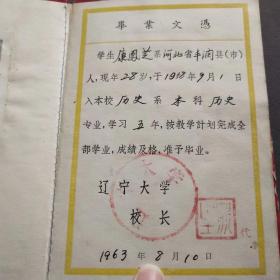 畢業文憑
学生康凤芝系河北省丰润县(市)
人,现年28岁,于1958年9月1日
入本校历史系本科历史
专业,学习五年,按教学計划完成全
部学业,成績及格,准予毕业。
辽宁大学
校长
代
1963年8月10日